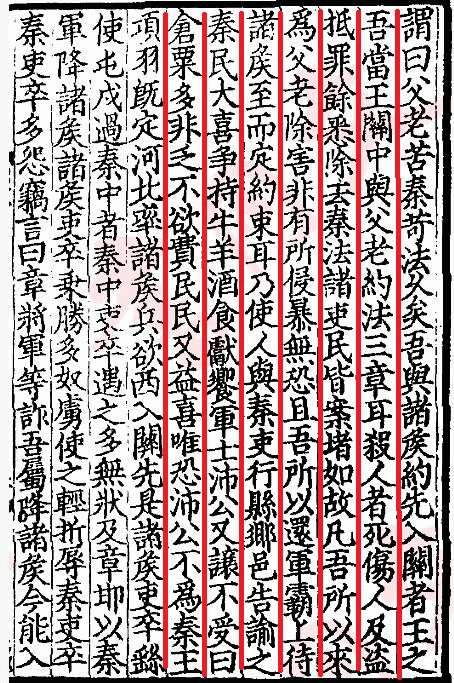 謂曰父老苦秦苛法久矣吾與諸矦約先入關者王之
吾當王關中與父老約法三章耳殺人者死傷人及盜
抵罪餘悉除去秦法諸吏民皆案堵如故凡吾所以來
爲父老除害非有所侵暴無恐且吾所以還軍霸上待
諸矦至而定約束耳乃使人與秦吏行縣鄉邑告諭之
秦民大喜爭持牛羊酒食獻饗軍士沛公又讓不受曰
倉粟多非乏不欲費民民又益喜唯恐沛公不爲秦王
項羽既定河北率諸矦兵欲西入關先是諸矦吏卒繇
使屯戍過秦中者秦中吏卒遇之多無狀及章邯以秦
軍降諸矦諸矦吏卒乗勝多奴虜使之輕折辱秦吏卒
秦吏卒多怨竊言曰章將軍等詐吾屬降諸矦今能入